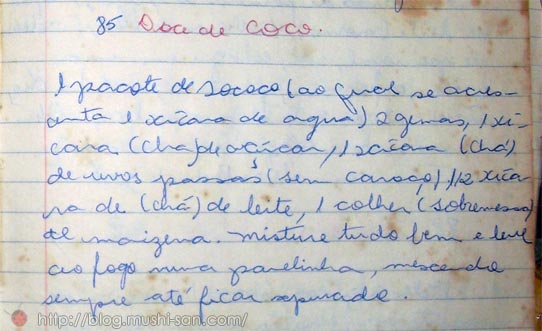 85 Doce de coco.
1 pacote de sococo (ao qual se acres-
centa 1 xícara de água) 2 gemas, 1 xí-
cara (chá) de açúcar, 1 xícara (chá)
de uvas passas (sem caroço), 1/2 xíca-
ra de (chá) de leite, 1 colher (sobremesa)
de maizena. Misture tudo bem e leve
ao fogo numa panelinha, mexendo
sempre até ficar separado.
http://blog.mushi-san.com/